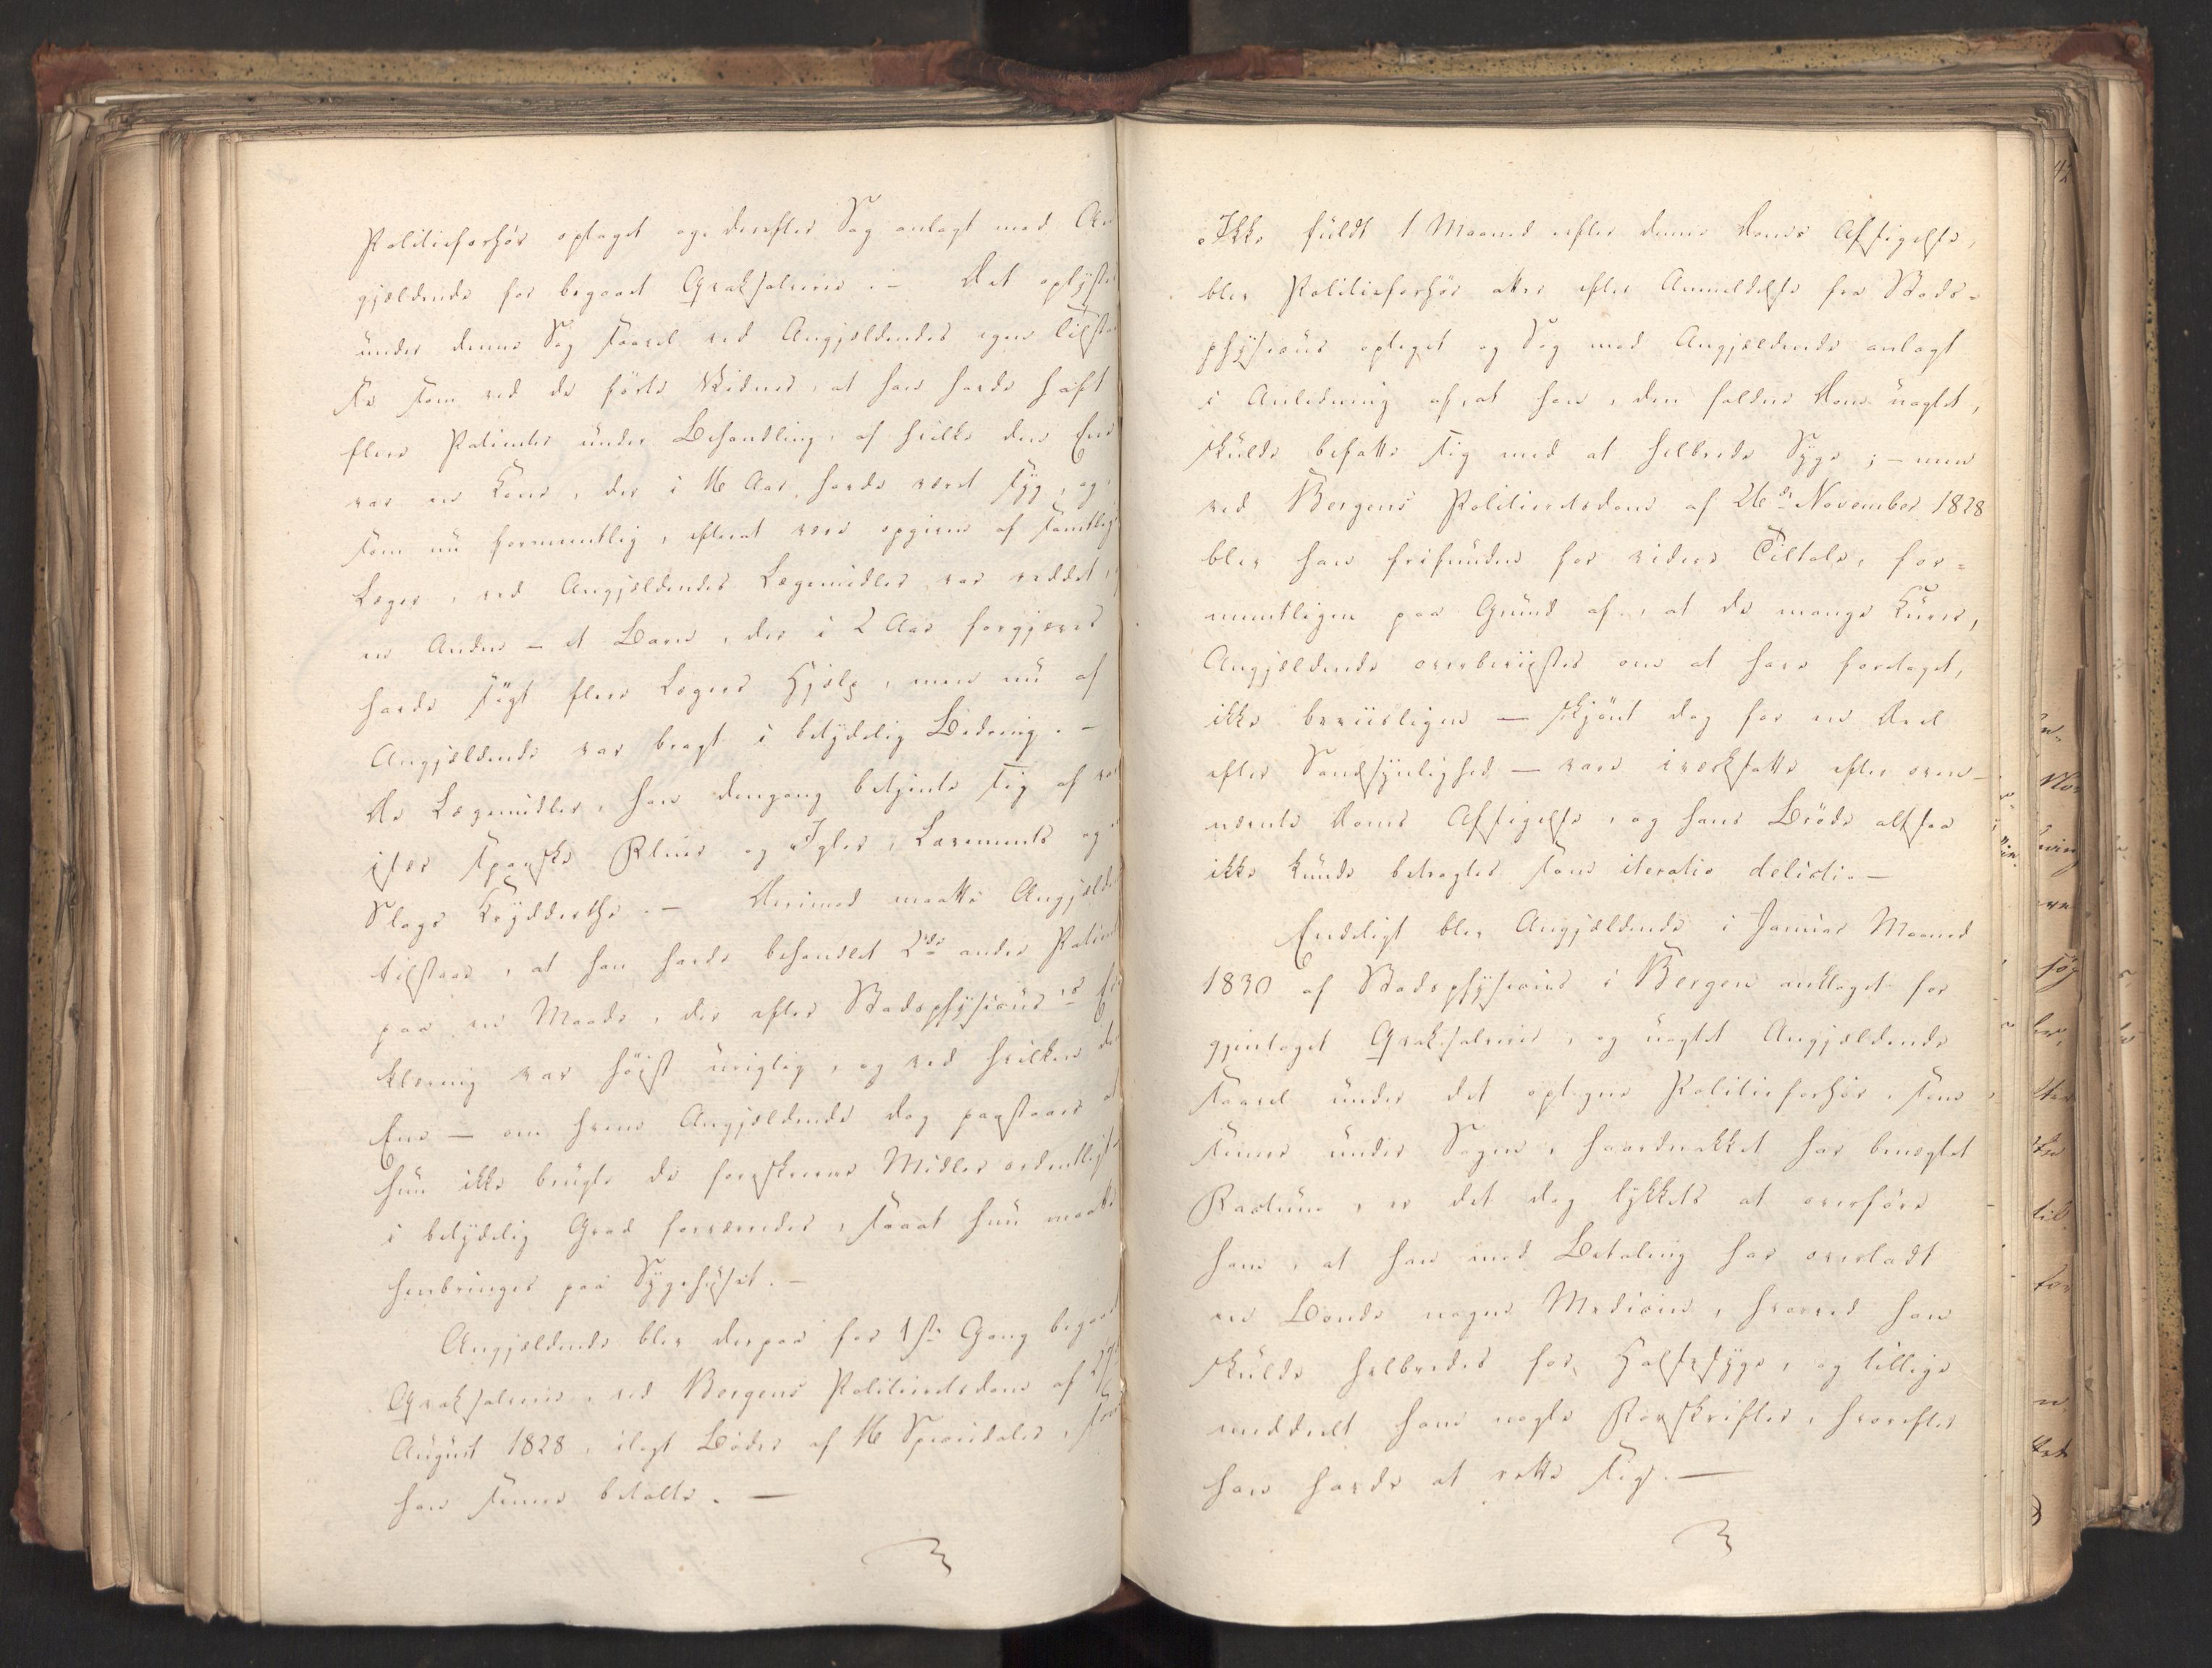 Politieforhör optaget og derefter Sag anlagt mod An
gjældende for begaaet Qvaksalverie. – Det oplystes
under denne Sag saavel ved Angjældendes egen Tilstaa
se som ved de förte Vidner, at han havde haft
flere Patienter under Behandling, af hvilke den Ene
var en Kone, der i 16 Aar havde været syg, og
som nu formeentlig, efterat være opgiven af samtlige
Læger, ved Angjældendes Lægemidler var reddet,
en Anden – et Barn, der i 2 Aar forgjeves
havde sögt flere Lægers Hjælp, men nu af
Angjældende var bragt i betydelig Bedring. –
De Lægemidler, han dengang betjente sig af var
især spanske Fluer og Igler, Lavements og
Slags Krydderthe. – Derimod maatte Angjælde
tilstaae, at han havde behandlet 2de andre Patient
paa en Maade, der efter Stadsphysicus's Er
klæring var höist urigtig, og ved hvilken den
Ene – om hvem Angjældende dog paastaaer at
hun ikke brugte de forskrevne Midler ordentligt
i betydelig Grad forværredes, saaat hun maatte
henbringes paa Sygehuset. –
Angjældende blev derpaa for 1ste Gang begaaet
Qvaksalverie, ved Bergens Politieretsdom af 27de
August 1828, ilagt Böder af 16 Speciedaler, som
han senere betalte. –
Ikke fuldt 1 Maaned efter denne Doms Afsigelse,
blev Politieforhör atter efter Anmeldelse fra Stads-
physicus optaget og Sag mod Angjældende anlagt
i Anledning af, at han, den faldne Dom uagtet,
skulde befatte sig med at helbrede Syge; – men
ved Bergens Politieretsdom af 26de November 1828
blev han frifunden for videre Tiltale, for-
meentligen paa Grund af, at de mange Kurer,
Angjældende overbeviistes om at have foretaget,
ikke beviisligen – skjönt dog for en Deel
efter Sandsynlighed – vare iværksatte efter oven-
nævnte Doms Afsigelse, og hans Bröde altsaa
ikke kunde betragtes som iteratio delicti. –
Endeligt blev Angjældende i Januar Maaned
1830 af Stadsphysicus i Bergen anklaget for
gjentaget Qvaksalverie, og uagtet Angjældende
saavel under det optagne Politieforhör, som
senere under Sagen, haardnakket har benægtet
Factum, er det dog lykkets at overföre
ham, at han mod Betaling har overladt
en Bonde nogen Medicin, hvorved han
skulde helbredes for Halssyge, og tillige
meddeelt ham nogle Forskrifter, hvorefter
han havde at rette sig. –